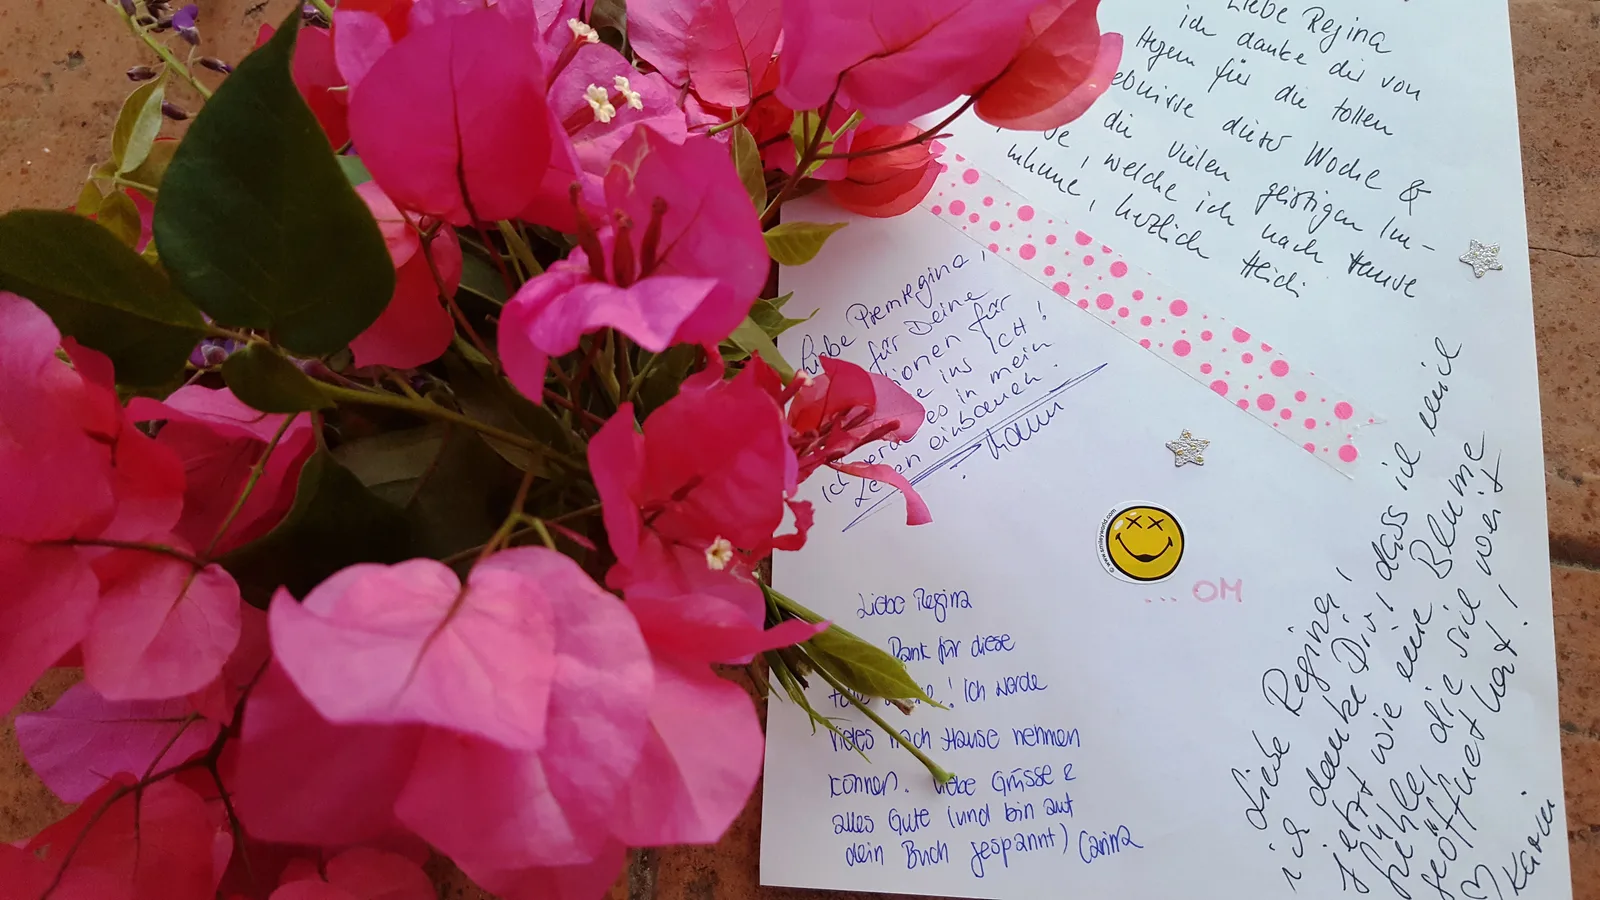 Liebe Regina
ich danke dir von
Herzen für die tollen
ebnisse dieser Woche &
die vielen geistigen Im-
, welche ich nach Hause
, herzlich Heidi
Liebe Premregina,
für Deine
ionen für
e ins ICH!
es in mein
Leben einbauen.
Liebe Regina
Dank für diese
! Ich werde
vieles nach Hause nehmen
können. Liebe Grüsse &
alles Gute (und bin auf
dein Buch gespannt) Carina
© www.smileyworld.com
... OM
Liebe Regina,
ich danke Dir, dass ich mich
jetzt wie eine Blume
fühle, die sich weit
geöffnet hat!
♡ Karin